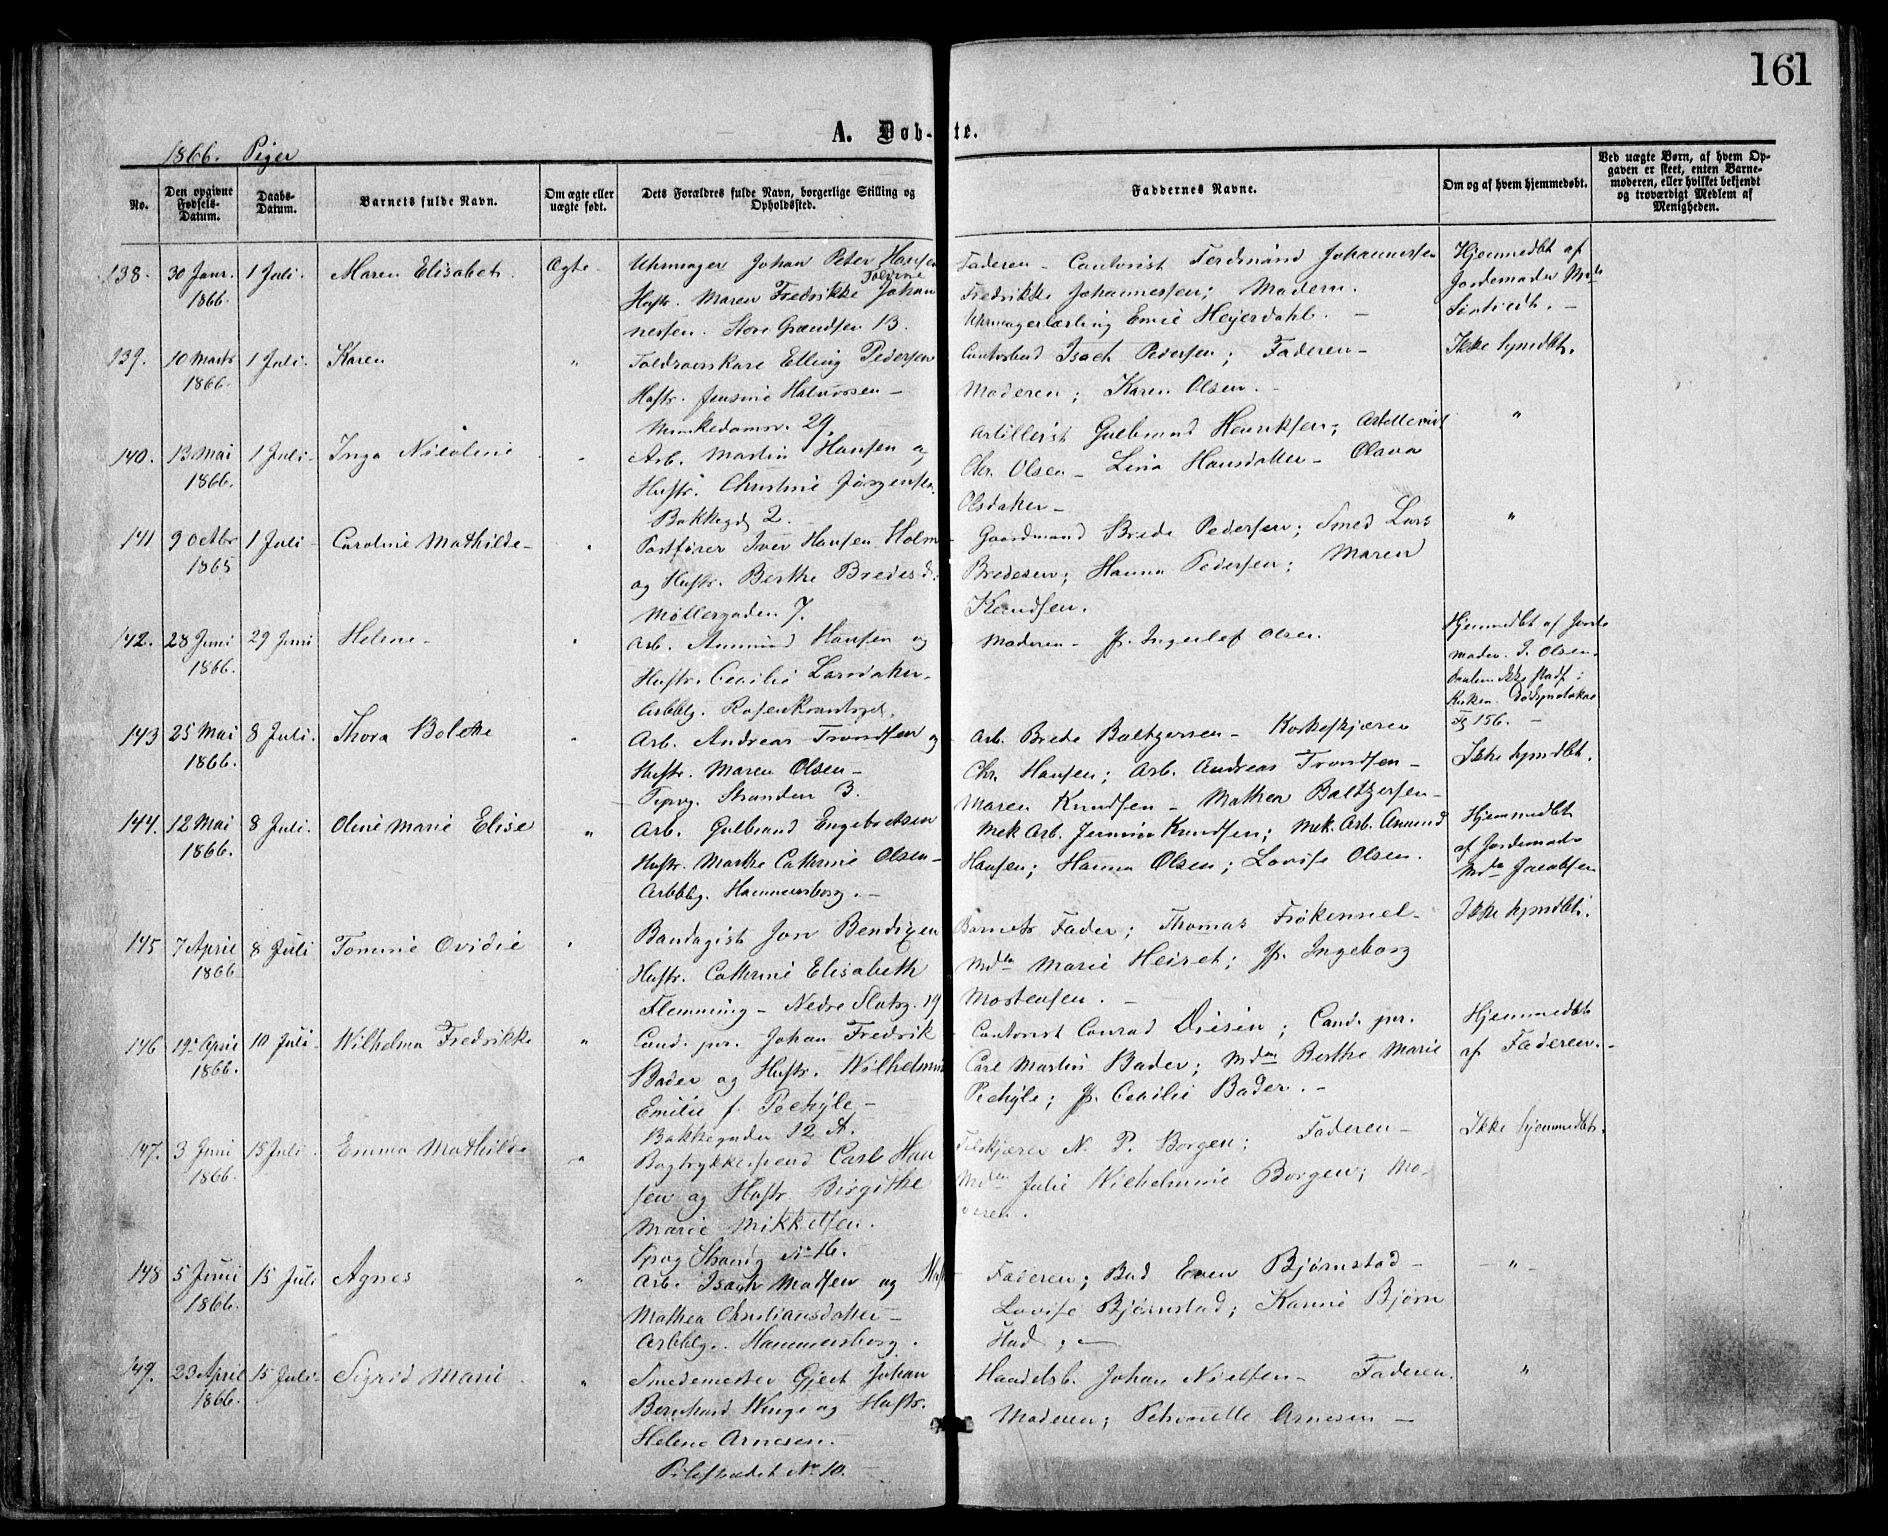 161
A. Døb- te.
1866. Piger
No.
Den opgivne Fødsels-Datum.
Daabs-Datum.
Barnets fulde Navn.
Om ægte eller uægte født.
Dets Forældres fulde Navn, borgerlige Stilling og Opholdssted.
Faddernes Navne.
Om og af hvem hjemmedøbt.
Ved uægte Børn, af hvem Opgaven er skeet, enten Barnemoderen, eller hvilket bekjendt og troværdigt Medlem af Menigheden.
138. 30 Janr. 1866. 1 Juli Maren Elisabet. Ægte
Uhrmager Johan Peter Hansen
Hustr. Maren Fredrikke Johan
nessen. Store Grændsen 13.
Faderen - Contorist Ferdinand Johannessen
Fredrikke Johannessen; Modern.
Uhrmagerlærling Emil Heyerdahl. -
Hjemmedbt af
Jordemoder
139. 10 Marts 1866. 1 Juli. Karen "
Elling Pedersen
Hustr. Jensine Halvorsen -
Munkedamsv. 29.
Isach Pedersen; Faderen -
Moderen; Karen Olsen. -
Ikke hjmdbt.
140. 13 Mai 1866. 1 Juli - Inga Nicoline "
Arb. Martin Hansen og
Hustr. Christine Jørgensen.
Bakkegd. 2. -
Artillerist Gulbrand Henriksen; Artillerist
Chr. Olsen - Lina Hansdatter - Olava
Olsdatter -
"
141 9 Octbr 1865 1 Juli - Caroline Mathilde - "
Postfører Iver Hansen Holm
og Hustr. Berthe Bredesd.
Møllergaden 7.
Gaardmand Brede Pedersen; Smed Lars
Bredesen; Hanna Pedersen; Maren
Knudsen.
"
142. 28 Juni 1866. 29 Juni Helene - "
Arb. Amund Hansen og
Hustr. Cecilie Larsdatter.
Arbblg. Rosenkrantzgd.
Moderen - Jf. Ingerlef Olsen.
Hjemmedbt af Jorde
moder. I. Olsen.
156. -
143 25 Mai 1866. 8 Juli. Thora Bolette "
Arb. Andreas Trondsen og
Hustr. Maren Olsen -
Stranden 3.
Arb. Brede Baltzersen -
Chr. Hansen; Arb. Andreas Trondsen -
Maren Knudsen - Mathea Baltzersen -
Ikke hjmdbt.
144. 12 Mai 1866. 8 Juli. Oline Marie Elise "
Arb. Gulbrand Engebretsen
Hustr. Marthe Cathrine Olsen -
Arbblg. Hammersborg. -
Mek. Arb. Knudsen; Mek. Arb. Amund
Hansen; Hanna Olsen; Lovise Olsen.
Hjemmedbt
af Jordemoder
Mda Jacobsen
145 7 April 1866 8 Juli Tomine Ovidie "
Bandagist Jon Bendixen
Hustr. Cathrine Elisabeth
Flemming - Nedre Slotsg. 19
Barnets Fader; Thomas
Mda Marie Heiret; Jf. Ingeborg
Mortensen. -
Ikke hjmdbt.
146 19 April 1866. 10 Juli - Wilhelma Fredrikke "
Cand. jur. Johan Fredrik
Bader og Hustr. Wilhelmine
Emilie f. Pechyle -
Bakkegaden 12 A.
Contorist Conrad Diesen; Cand. jur.
Carl Martin Bader; Mdm Berthe Marie
Pechyle; Jf. Cecilie Bader. -
Hjemmedbt
af Faderen. -
147. 3 Juni 1866. 15 Juli - Emma Mathilde "
Bogtrykkersvend Carl Han
sen og Hustr. Birgithe
Marie Mikkelsen.
N. P. Borgen; Faderen -
Julie Wilhelmine Borgen; Mo-
deren.
Ikke hjemmedbt.
148 5 Juni 1866. 15 Juli Agnes "
Arb. Isach Madsen og Hust
Mathea Christiansdatter -
Arbblg. Hammersborg.
Faderen; Bud Even Bjørnstad -
Lovise Bjørnstad; Karine Bjørn
stad; -
- " -
149. 23 April 1866. 15 Juli. Sigrid Marie. "
Smedemester Gjert Johan
Bernhard Winge og Hustr.
Helene Arnesen. -
Pilestrædet No 10. -
Handelsb. Johan Nielsen - Faderen.
Moderen; Petronelle Arnesen -
"